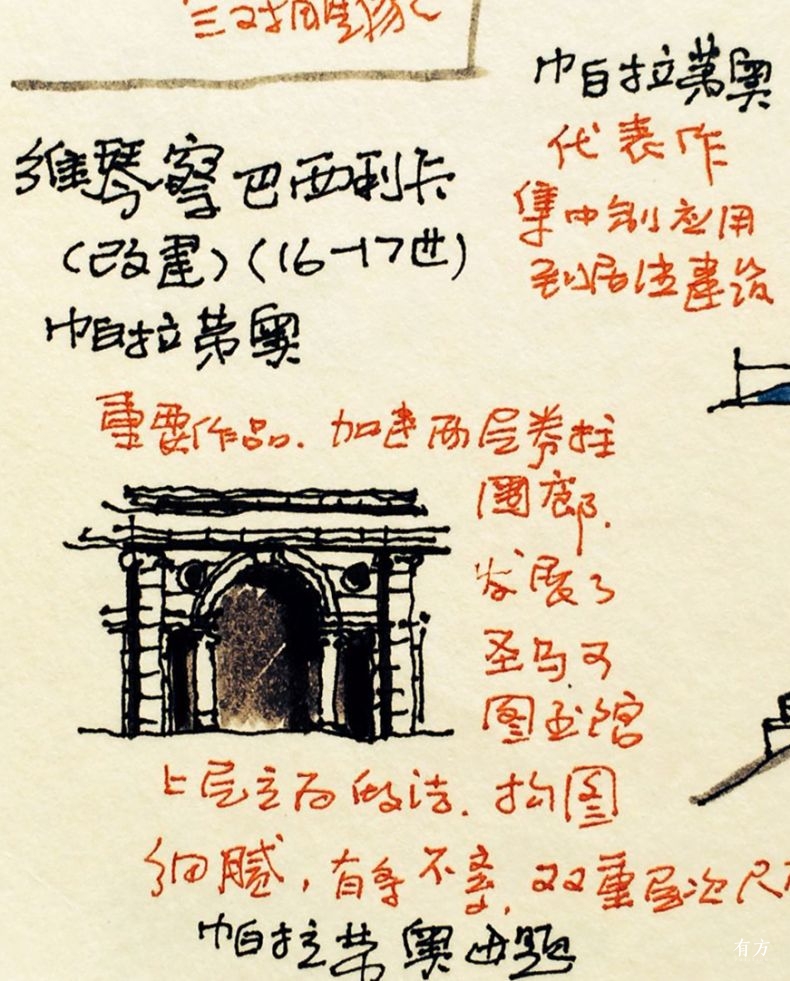 维琴察巴西利卡
(改建)(16-17世)
帕拉第奥
重要作品.加建两层券柱
围廊.
发展了
圣马可
图书馆
上层立面做法.构图
细腻,有条不紊,双重层次尺
帕拉第奥母题
帕拉第奥
代表作
集中制应用
到居住建筑
有方